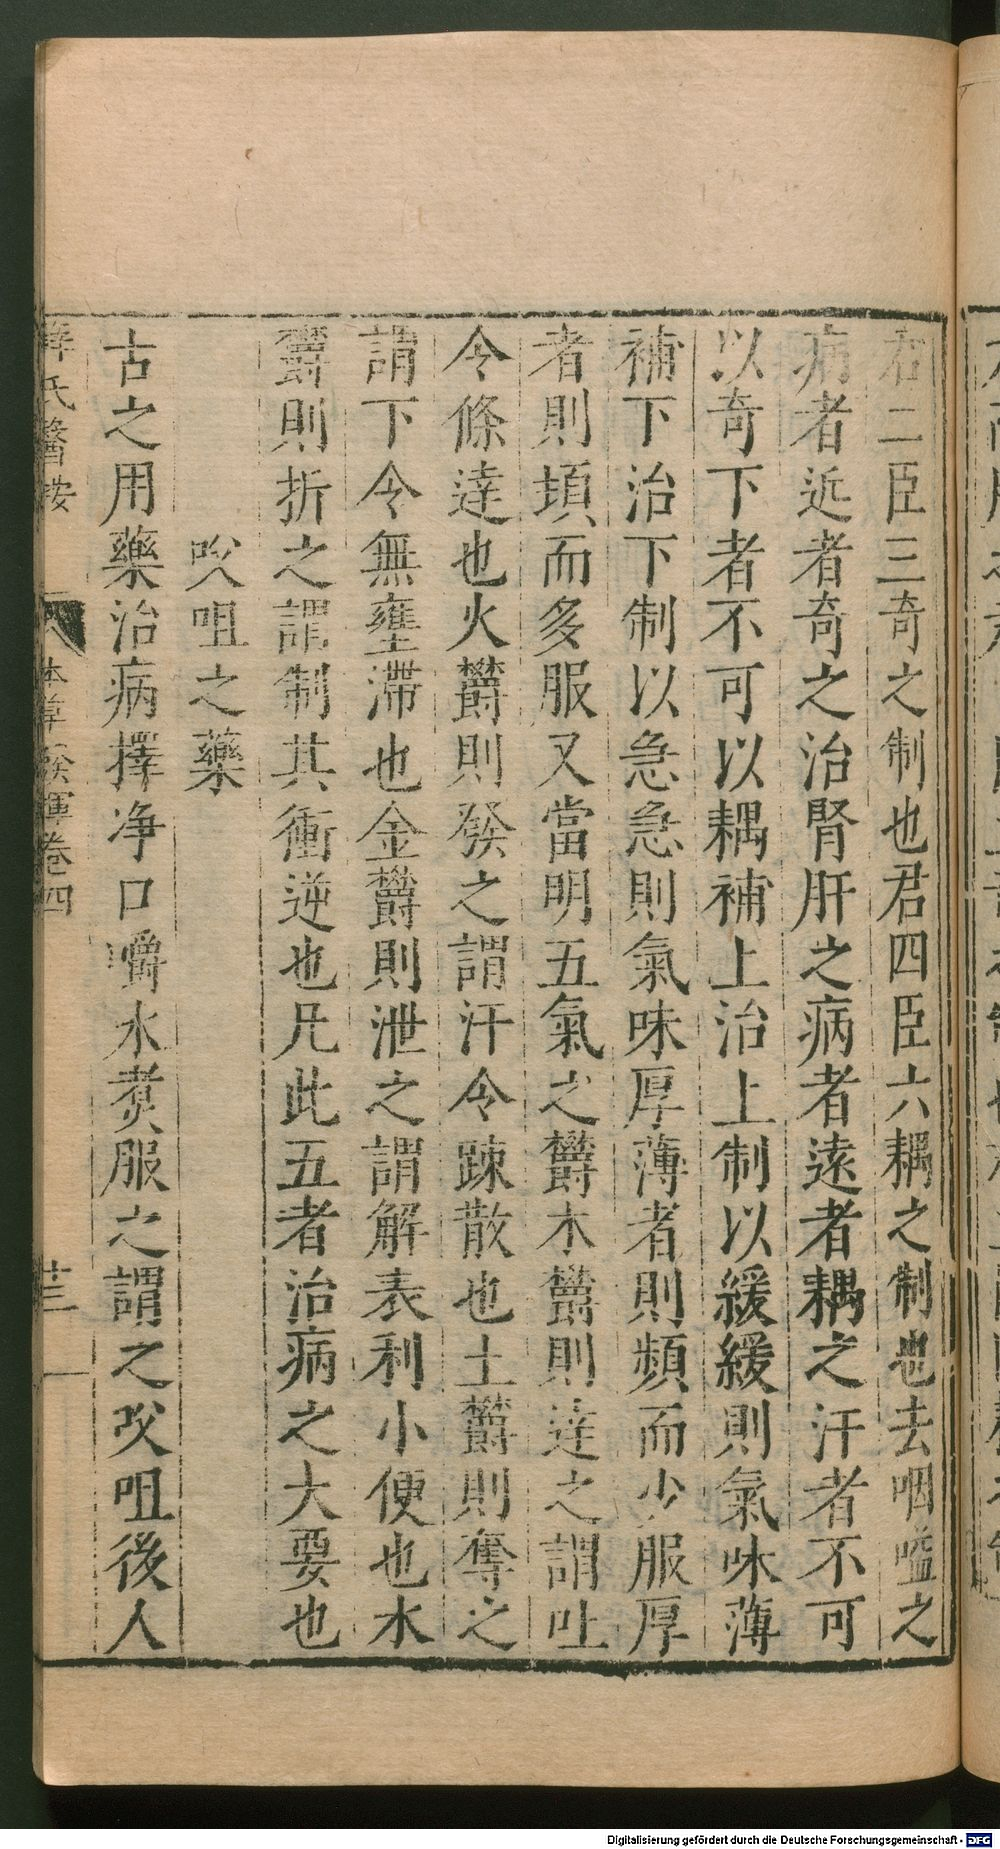 君二臣三奇之制也君四臣六耦之制也去咽嗌之
病者近者奇之治腎肝之病者遠者耦之汗者不可
以奇下者不可以耦補上治上制以緩緩則氣味薄
補下治下制以急急則氣味厚薄者則頻而少服厚
者則頓而多服又當明五氣之欝木欝則達之謂吐
令條達也火欝則發之謂汗令踈散也土欝則奪之
謂下令無壅滯也金欝則泄之謂解表利小便也水
欝則折之謂制其衝逆也凡此五者治病之大要也
㕮咀之藥
古之用藥治病擇净口嚼水煮服之謂之㕮咀後人
薛氏醫按 本草發揮卷四 廿三
Digitalisierung gefördert durch die Deutsche Forschungsgemeinschaft - DFG